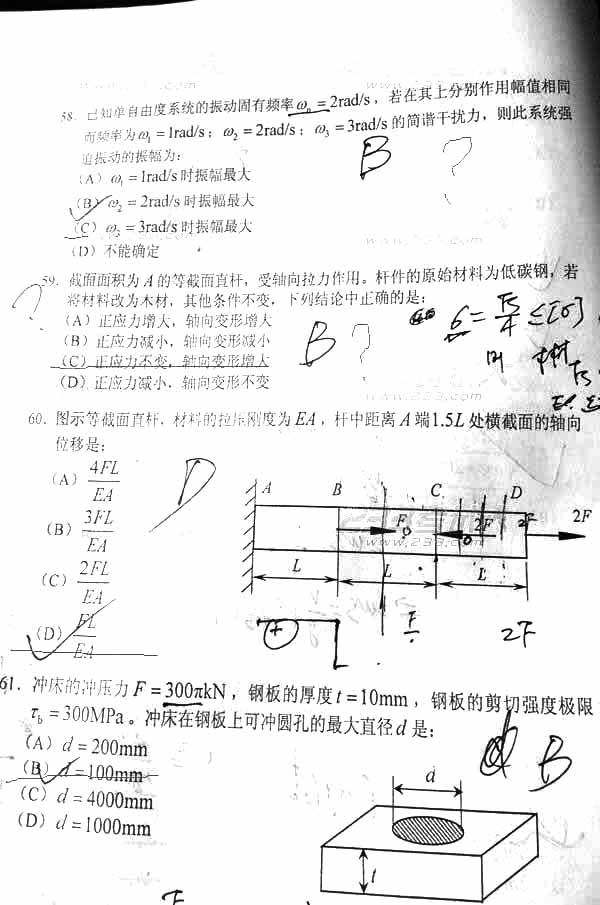 58. 已知单自由度系统的振动固有频率ωn=2rad/s，若在其上分别作用幅值相同
而频率为ω1=1rad/s；ω2=2rad/s；ω3=3rad/s的简谐干扰力，则此系统强
迫振动的振幅为：
(A) ω1=1rad/s时振幅最大
(B) ω2=2rad/s时振幅最大
(C) ω3=3rad/s时振幅最大
(D) 不能确定
B ?
59. 截面面积为A的等截面直杆，受轴向拉力作用。杆件的原始材料为低碳钢，若
将材料改为木材，其他条件不变，下列结论中正确的是：
(A) 正应力增大，轴向变形增大
(B) 正应力减小，轴向变形减小
(C) 正应力不变，轴向变形增大
(D) 正应力减小，轴向变形不变
? B ?
60. 图示等截面直杆，材料的拉压刚度为EA，杆中距离A端1.5L处横截面的轴向
位移是：
(A) 4FL/EA
(B) 3FL/EA
(C) 2FL/EA
(D) FL/EA
D
A B C D
F 2F 2F 2F
www.233.com
L L L
+ F 2F
61. 冲床的冲压力F=300πkN，钢板的厚度t=10mm，钢板的剪切强度极限
τb=300MPa。冲床在钢板上可冲圆孔的最大直径d是：
(A) d=200mm
(B) d=100mm
(C) d=4000mm
(D) d=1000mm
d B
d
t